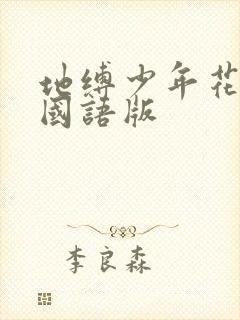 地缚少年花
國語版
李良森